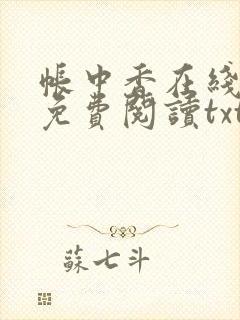 帳中香在綫
免費閱讀txt
蘇七斗